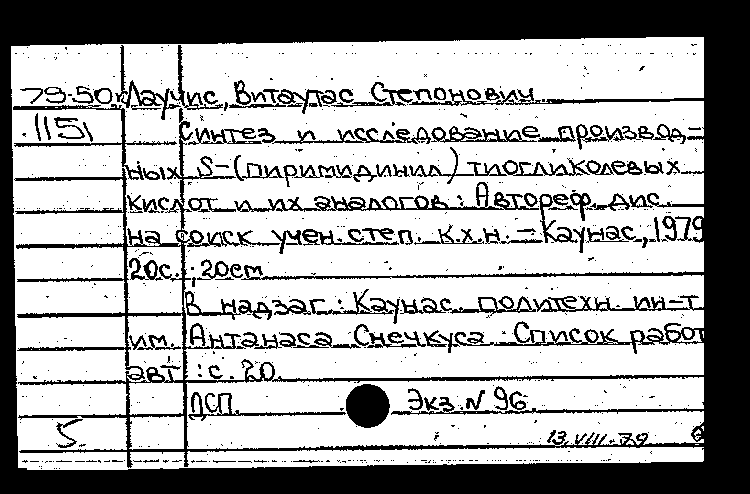 79-50к Лаучис, Витаутас Степонович
1151 Синтез и исследование производ-
ных S-(пиримидинил) тиогликолевых
кислот и их аналогов : Автореф. дис.
на соиск учен. степ. к.х.н. - Каунас, 1979
20с. ; 20см
В надзаг : Каунас. политехн. ин-т
им. Антанаса Снечкуса. Список работ
авт : с. 20.
ДСП. Экз. N 96.
5 13.VIII-79